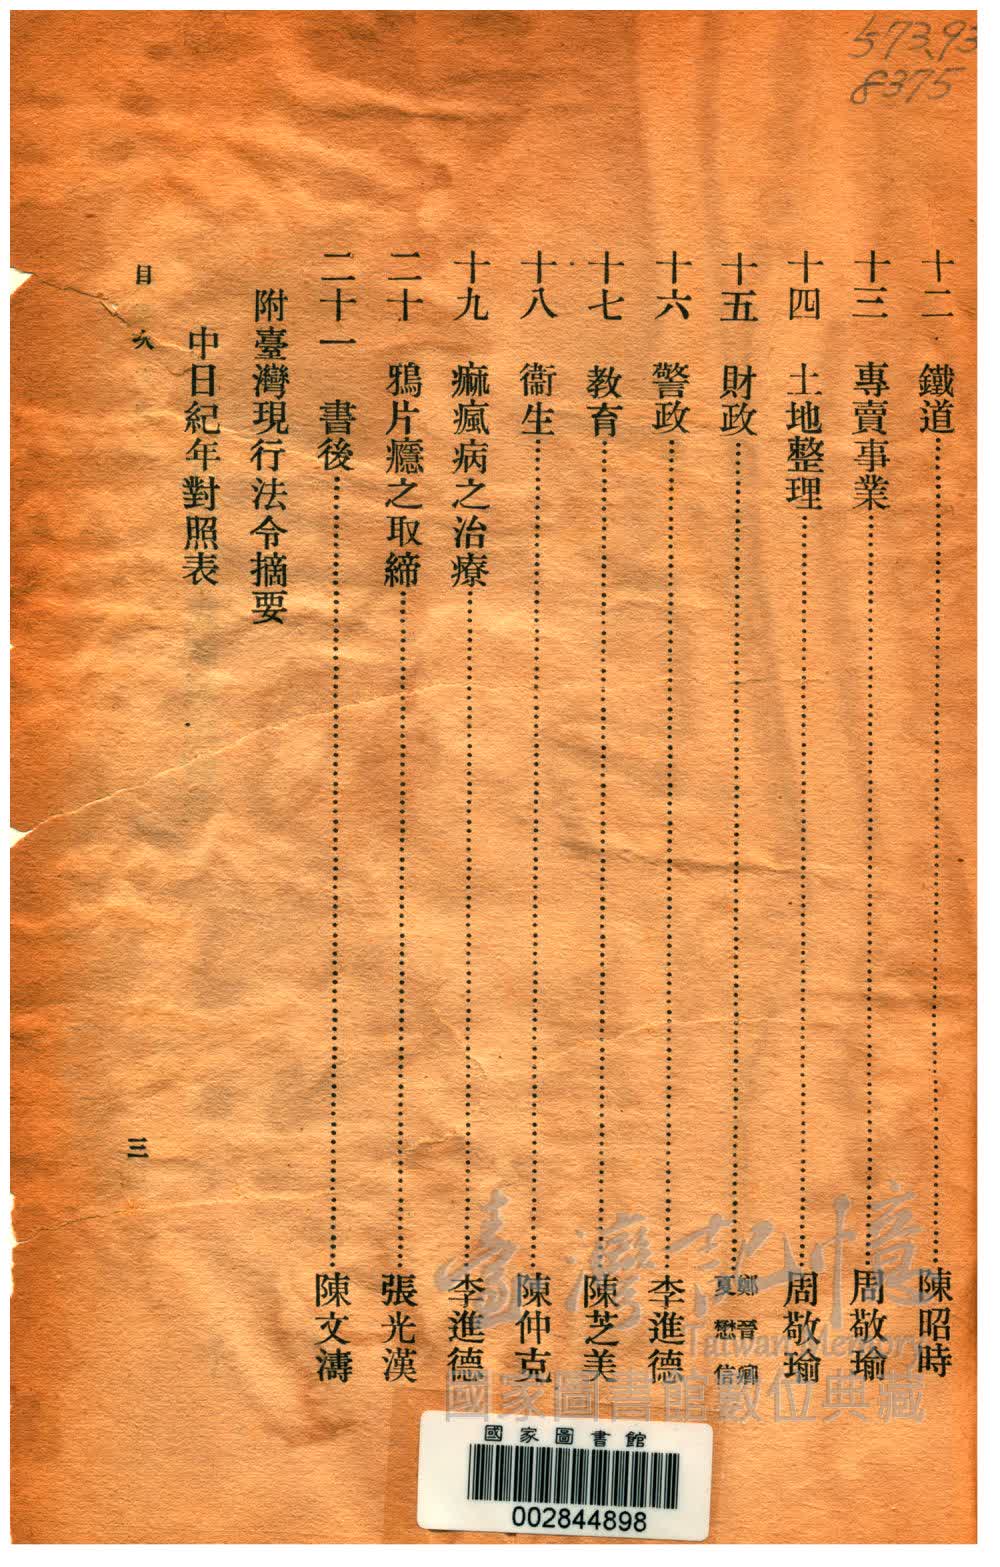 573.93
8375
十二　鐵道……陳昭時
十三　專賣事業……周敬瑜
十四　土地整理……周敬瑜
十五　財政……鄭晉卿　夏懋信
十六　警政……李進德
十七　教育……陳芝美
十八　衞生……陳仲克
十九　痲瘋病之治療……李進德
二十　鴉片癮之取締……張光漢
二十一　書後……陳文濤
附臺灣現行法令摘要
中日紀年對照表
目次
三
臺灣記憶
Taiwan Memory
國家圖書館數位典藏
國家圖書館
002844898